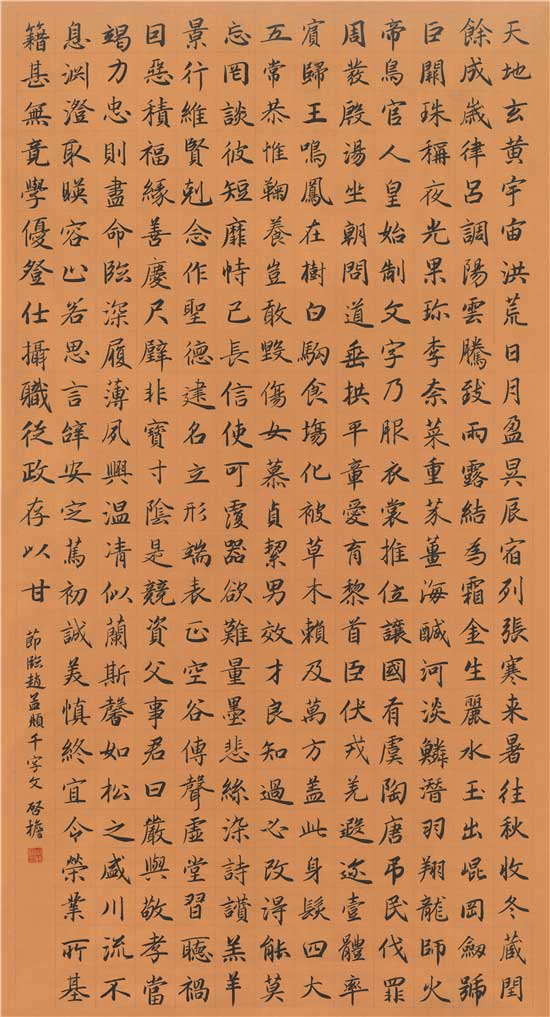 天地玄黄宇宙洪荒日月盈昃辰宿列張寒来暑往秋收冬蔵閏
餘成歲律呂調陽雲騰致雨露結為霜金生麗水玉出崐岡劔號
巨闕珠稱夜光果珎李柰菜重芥薑海鹹河淡鱗潛羽翔龍師火
帝鳥官人皇始制文字乃服衣裳推位讓國有虞陶唐吊民伐罪
周發殷湯坐朝問道垂拱平章愛育黎首臣伏戎羌遐迩壹體率
賓歸王鳴鳳在樹白駒食場化被草木賴及萬方盖此身髮四大
五常恭惟鞠養豈敢毀傷女慕貞絜男效才良知過必改得能莫
忘罔談彼短靡恃己長信使可覆器欲難量墨悲絲染詩讃羔羊
景行維賢剋念作聖德建名立形端表正空谷傳聲虛堂習聽禍
因惡積福緣善慶尺璧非寶寸陰是競資父事君曰嚴與敬孝當
竭力忠則盡命臨深履薄夙興温凊似蘭斯馨如松之盛川流不
息淵澄取暎容止若思言辭安定篤初誠美慎終宜令榮業所基
籍甚無竟學優登仕攝職從政存以甘
節臨趙孟頫千字文 啓